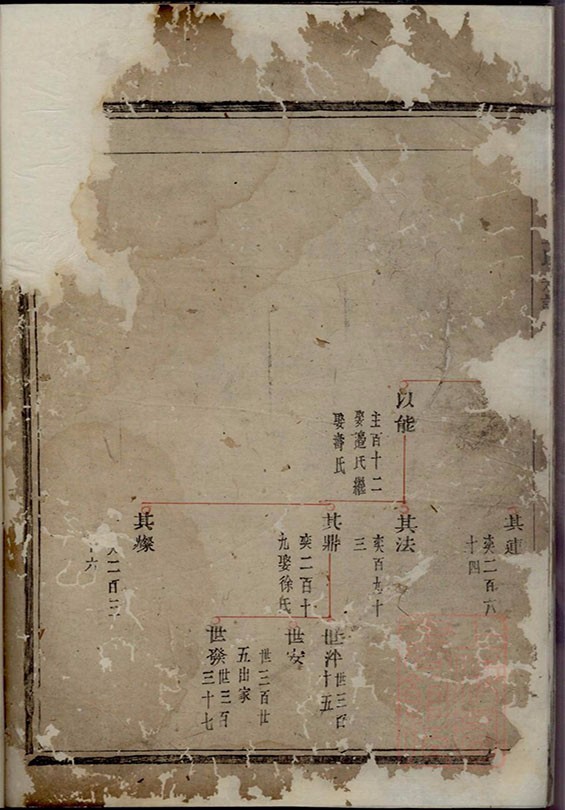 以能
主百十二
娶邉氏繼
娶壽氏
其
奕二百六
十四
其法
奕百九十
三
其鼎
奕二百十
九娶徐氏
其燦
二百三
十六
世泮
世三百
十五
世安
世三百廿
五出家
世發
世三百
三十七